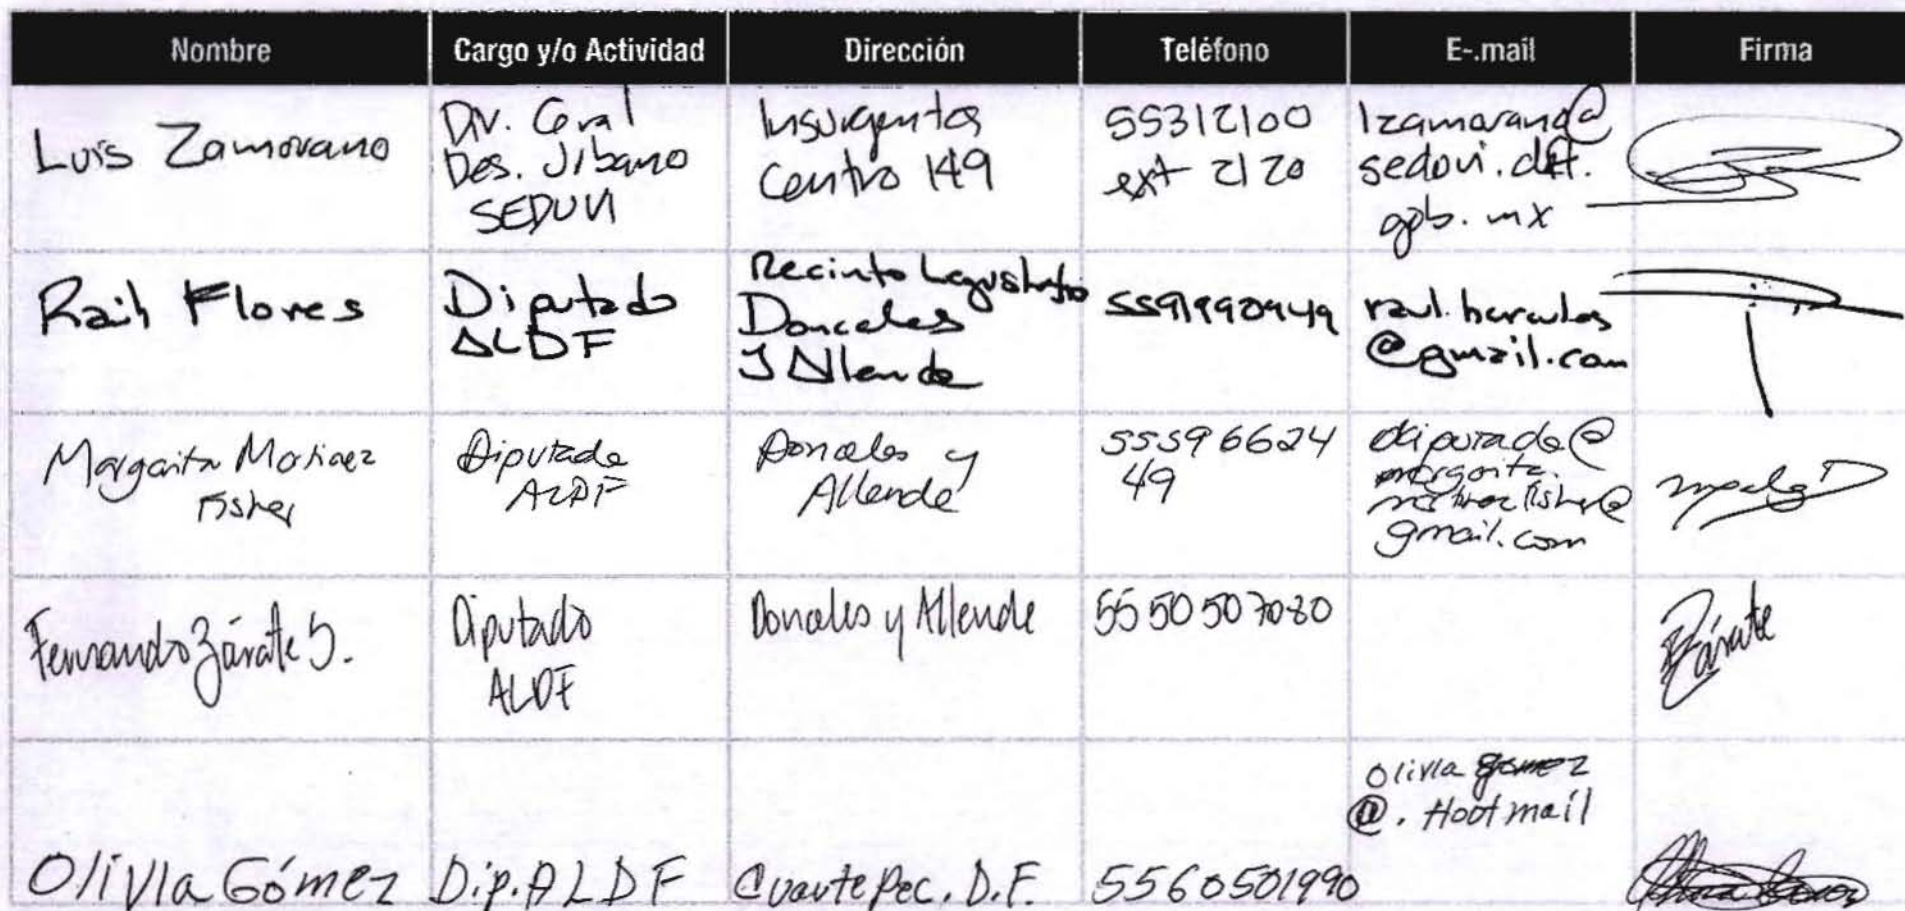 Nombre Cargo y/o Actividad Dirección Teléfono E-.mail Firma
Luis Zamorano
Dir. Gral
Des. Urbano
SEDUVI
Insurgentes
Centro 149
55312100
ext 2120
lzamorano@
sedovi.df.
gob.mx
Raúl Flores
Diputado
ALDF
Recinto Legislativo
Donceles
y Allende
raul.hercules
@gmail.com
Margarita Martinez
Fisher
Diputada
ALDF
Donceles y
Allende
55596624
49
diputada@
margarita.
martinezfisher@
gmail.com
Fernando Zárate S.
Diputado
ALDF
Donceles y Allende
5550507080
Zárate
Olivia Gómez
Dip. ALDF
Cuautepec. D.F.
5560501990
olivia gomez
@. Hootmail